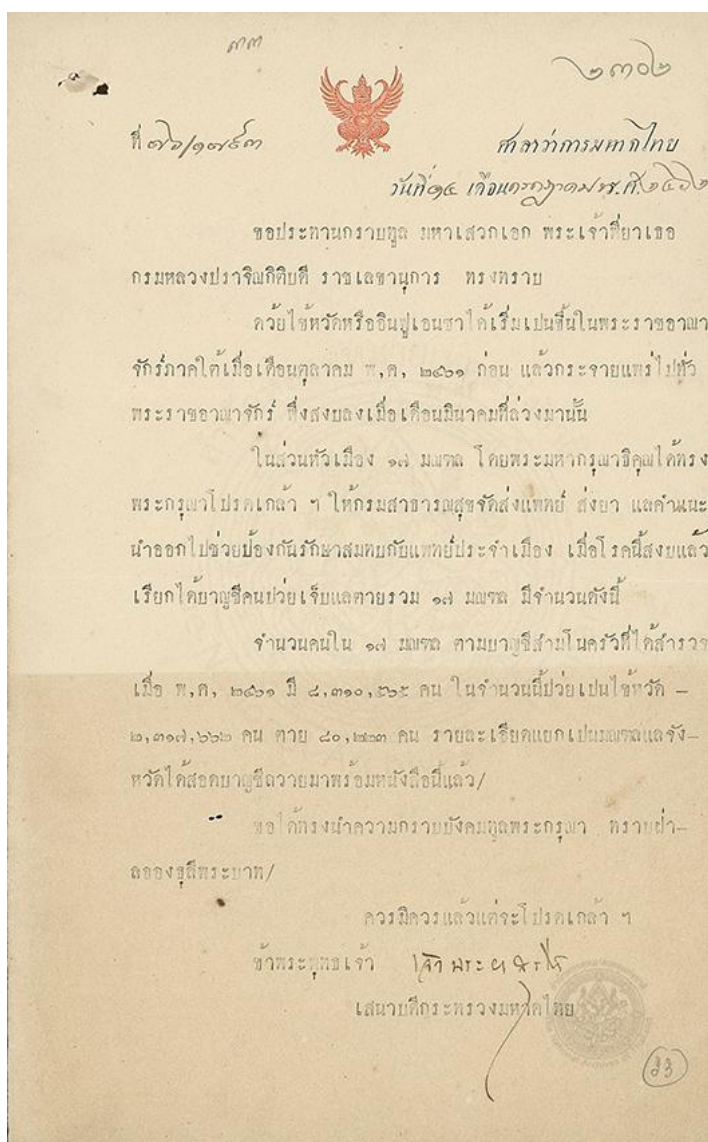 ๓๓
๒๓๐๒
ที่ ๗๖/๑๗๕๓
ศาลาว่าการมหาดไทย
วันที่ ๑๔ เดือนกรกฎาคม พ.ศ. ๒๔๖๒
ขอประทานกราบทูล มหาเสวกเอก พระเจ้าพี่ยาเธอ
กรมหลวงปราจิณกิติบดี ราชเลขานุการ ทรงทราบ
ด้วยไข้หวัดหรืออินฟูเอนซาได้เริ่มเปนขึ้นในพระราชอาณา
จักร์ภาคใต้เมื่อเดือนตุลาคม พ,ศ, ๒๔๖๑ ก่อน แล้วกระจายแพร่ไปทั่ว
พระราชอาณาจักร์ พึ่งสงบลงเมื่อเดือนมีนาคมที่ล่วงมานั้น
ในส่วนหัวเมือง ๑๗ มณฑล โดยพระมหากรุณาธิคุณได้ทรง
พระกรุณาโปรดเกล้า ฯ ให้กรมสาธารณสุขจัดส่งแพทย์ ส่งยา แลคำแนะ
นำออกไปช่วยป้องกันรักษาสมทบกับแพทย์ประจำเมือง เมื่อโรคนี้สงบแล้ว
เรียกได้บาญชีคนป่วยเจ็บแลตายรวม ๑๗ มณฑล มีจำนวนดังนี้
จำนวนคนใน ๑๗ มณฑล ตามบาญชีสำมโนครัวที่ได้สำรวจ
เมื่อ พ,ศ, ๒๔๖๑ มี ๘,๓๑๐,๕๖๕ คน ในจำนวนนี้ป่วยเปนไข้หวัด –
๒,๓๑๗,๖๖๒ คน ตาย ๘๐,๒๒๓ คน รายละเอียดแยกเปนมณฑลแลจัง–
หวัดได้สอดบาญชีถวายมาพร้อมหนังสือนี้แล้ว/
ขอได้ทรงนำความกราบบังคมทูลพระกรุณา ทราบฝ่า–
ลอองธุลีพระบาท/
ควรมิควรแล้วแต่จะโปรดเกล้า ฯ
ข้าพระพุทธเจ้า เจ้าพระยาสุรสีห์
เสนาบดีกระทรวงมหาดไทย
33